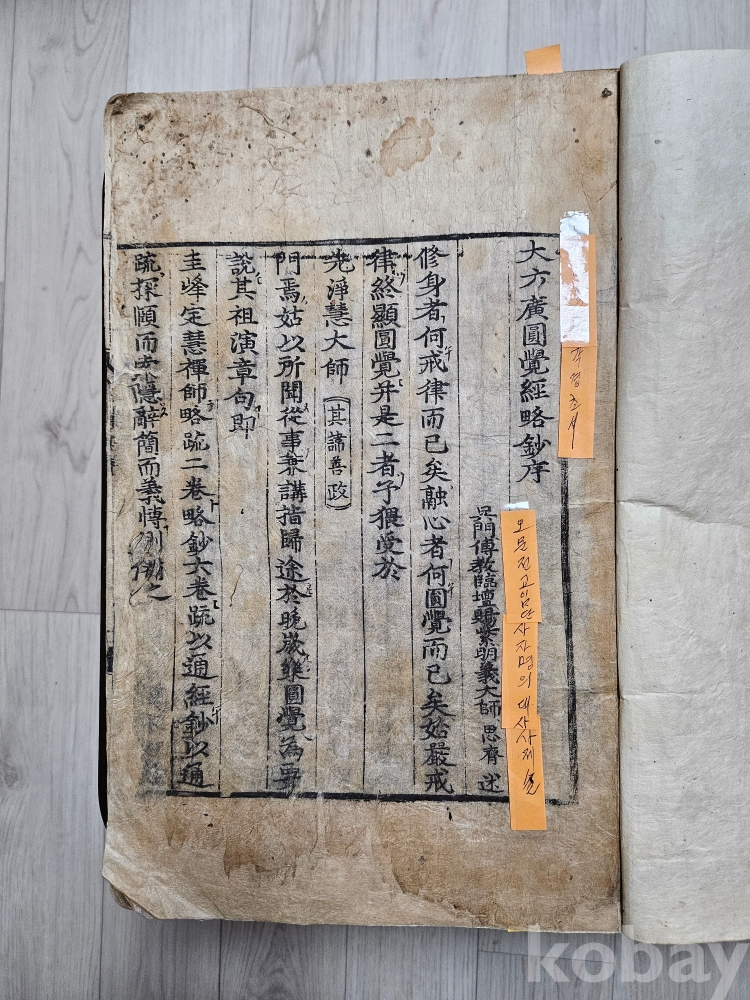 大方廣圓覺經略鈔序
吳門傳教臨壇賜紫明義大師 思齊 述
修身者何戒律而已矣融心者何圓覺而已矣始嚴戒
律終顯圓覺幷是二者予猥受於
先淨慧大師 其諱善政
門焉姑以所聞從事兼講指歸途於晚歲唯圓覺為要
說其祖演章句即
圭峰定慧禪師略疏二卷略鈔六卷疏以通經鈔以通
疏探賾而索隱辭簡而義愽
오문전고임단사자명의대사사제술
kobay